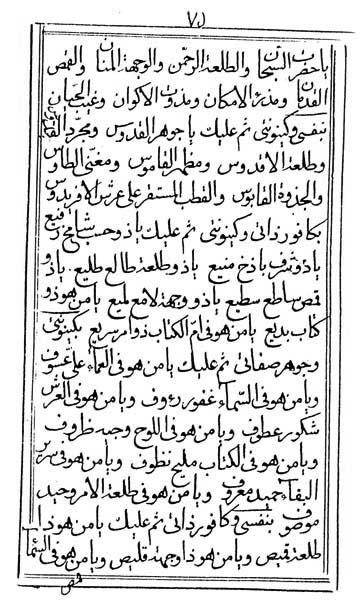 ٧٥
یا حضرت السبحان والطلعة الرحمن والوجهة المنان والقمص
القدمان ومذرء الامکان ومذوت الاکوان وغیب الجهان
بنفسی وکینونتی ثم علیک یا جوهر القدوس ومجرد
وطلعة الاقدوس ومظهر القاموس ومغنی الطاوس
والجذوة القابوس والقطب المستقر علی عرش الافریدوس
بکافور ذاتی وکینونتی ثم علیک یا ذو حسب شامخ رفیع
یا ذو شرف باذخ منیع یا ذو طلعة طالع طلیع یا ذو
قمص ساطع سطیع یا ذو وجهة لامع لمیع یا من هو ذو
کتاب بدیع یا من هو فی ام الکتاب ذو امر سریع بکینونتی
وجوهر صفاتی ثم علیک یا من هو فی العماء علی عسوف
ویا من هو فی السماء غفور رءوف ویا من هو فی العرش
شکور عطوف ویا من هو فی اللوح وجیه ظروف
ویا من هو فی الکتاب ملیح نظوف ویا من هو فی سریر
البقاء حمید معروف ویا من هو فی طلعة الامر وحید
موصوف بنفسی وکافور ذاتی ثم علیک یا من هو ذا
طلعة قمیص ویا من هو ذا وجهة قلیص ویا من هو فی السماء